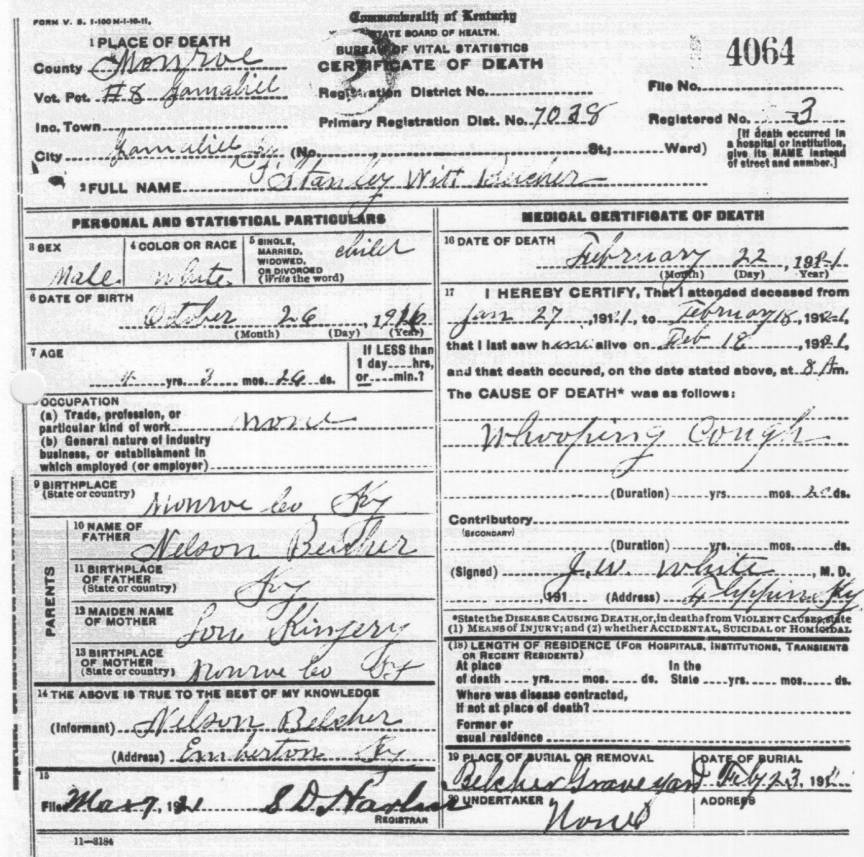 FORM V. S. 1-100 M-1-10-11.
Commonwealth of Kentucky
STATE BOARD OF HEALTH.
BUREAU OF VITAL STATISTICS
CERTIFICATE OF DEATH
4064
1 PLACE OF DEATH
County Monroe
Vot. Pct. #8 Gamaliel
Registration District No.
File No.
Inc. Town
Primary Registration Dist. No. 7028
Registered No. 3
City Gamaliel Ky. (No. St.; Ward)
[If death occurred in
a hospital or institution,
give its NAME instead
of street and number.]
2 FULL NAME Stanley Witt Belcher
PERSONAL AND STATISTICAL PARTICULARS
3 SEX
Male
4 COLOR OR RACE
White
5 SINGLE,
MARRIED,
WIDOWED,
OR DIVORCED
(Write the word)
child
6 DATE OF BIRTH
October 26, 1916
(Month) (Day) (Year)
7 AGE
4 yrs. 3 mos. 26 ds.
If LESS than
1 day hrs,
or min.?
8 OCCUPATION
(a) Trade, profession, or
particular kind of work none
(b) General nature of industry
business, or establishment in
which employed (or employer)
9 BIRTHPLACE
(State or country) Monroe Co Ky
PARENTS
10 NAME OF
FATHER Nelson Belcher
11 BIRTHPLACE
OF FATHER
(State or country) Ky
12 MAIDEN NAME
OF MOTHER Kingery
13 BIRTHPLACE
OF MOTHER
(State or country) Monroe Co Ky
14 THE ABOVE IS TRUE TO THE BEST OF MY KNOWLEDGE
(Informant) Nelson Belcher
(Address) Emberton Ky
15
Filed Mar 7, 1921 S D Harlin
REGISTRAR
11—3184
MEDICAL CERTIFICATE OF DEATH
16 DATE OF DEATH
February 22, 1921
(Month) (Day) Year)
17 I HEREBY CERTIFY, That I attended deceased from
Jan 27, 1921, to February 18, 1921,
that I last saw him alive on Feb 18, 1921,
and that death occured, on the date stated above, at 8 Am.
The CAUSE OF DEATH* was as follows:
Whooping Cough
(Duration) yrs. mos. 20 ds.
Contributory
(SECONDARY)
(Duration) yrs. mos. ds.
(Signed) J. W. White, M. D.
, 191 (Address) Flippin Ky
*State the DISEASE CAUSING DEATH, or, in deaths from VIOLENT CAUSES, state
(1) MEANS OF INJURY; and (2) whether ACCIDENTAL, SUICIDAL OR HOMICIDAL
(18) LENGTH OF RESIDENCE (FOR HOSPITALS, INSTITUTIONS, TRANSIENTS
OR RECENT RESIDENTS)
At place In the
of death yrs. mos. ds. State yrs. mos. ds.
Where was disease contracted,
If not at place of death?
Former or
usual residence
19 PLACE OF BURIAL OR REMOVAL
Belcher Graveyard
DATE OF BURIAL
Feby 23, 191
20 UNDERTAKER
None
ADDRESS